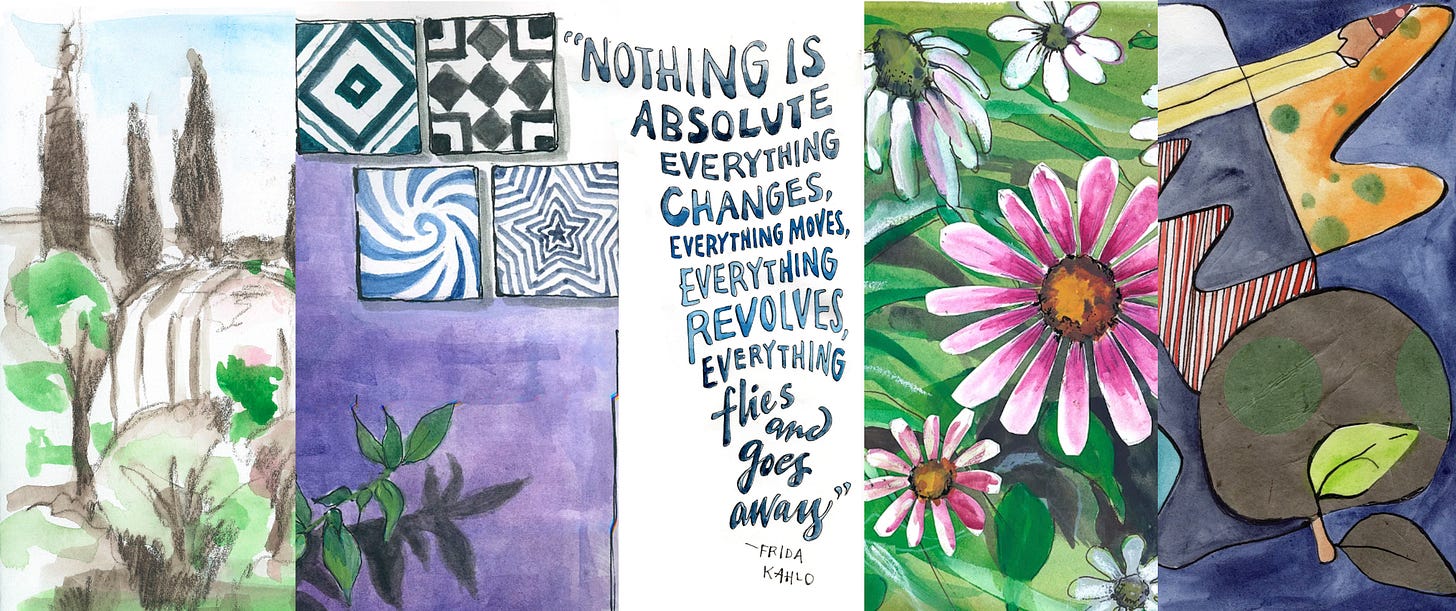 “NOTHING IS
ABSOLUTE
EVERYTHING
CHANGES,
EVERYTHING MOVES,
EVERYTHING
REVOLVES,
EVERYTHING
flies
and
goes
away”
–FRIDA
KAHLO